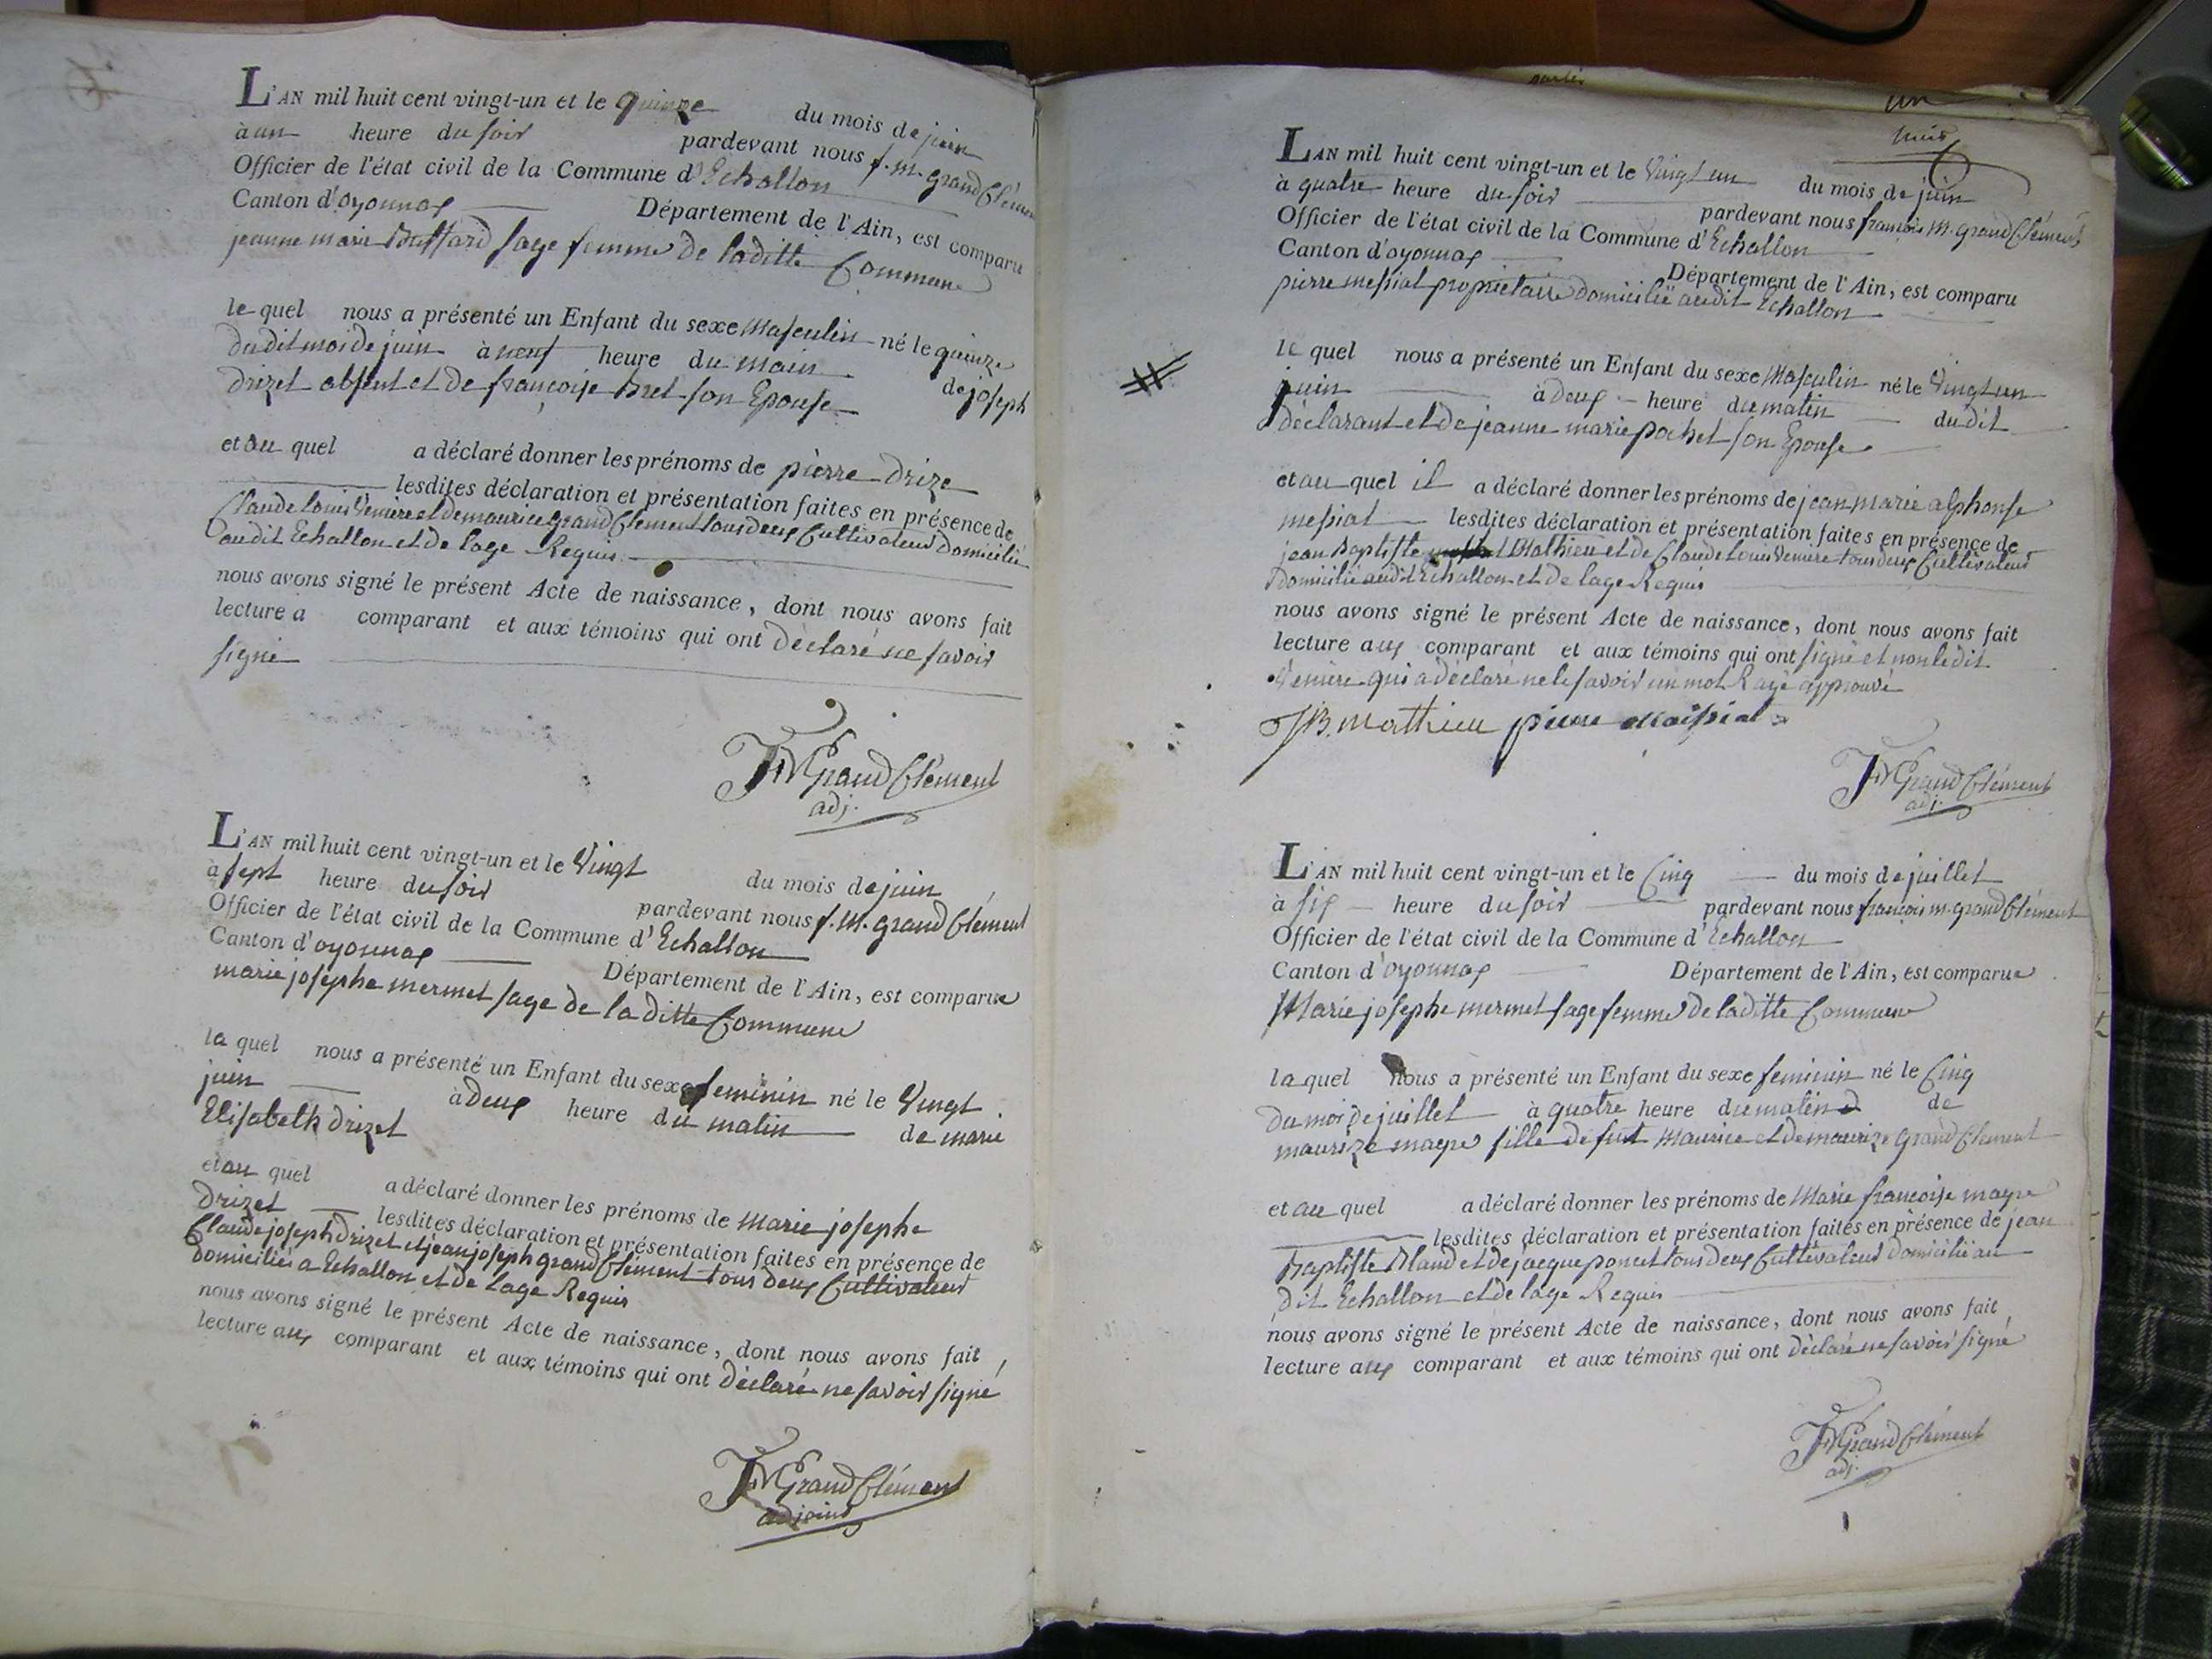 L'AN mil huit cent vingt-un et le quinze du mois de juin
à un heure du soir pardevant nous f. m. grand Clément
Officier de l'état civil de la Commune d'Echallon
Canton d'oyonnax Département de l'Ain, est comparu
jeanne marie Buffard sage femme de laditte Commune
le quel nous a présenté un Enfant du sexe Masculin né le quinze
dudit moi de juin à neuf heure du main de joseph
Drizet absent et de françoise Bret son Epouse
et au quel a déclaré donner les prénoms de pierre Drize
lesdites déclaration et présentation faites en présence de
Claude Louis Veniere et de maurice Grand Clement tous deux Cultivateur Domicilié
audit Echallon et de lage Requis
nous avons signé le présent Acte de naissance, dont nous avons fait
lecture a comparant et aux témoins qui ont déclaré ne savoir
signé
FM Grand Clément
adj.
L'AN mil huit cent vingt-un et le Vingt du mois de juin
à sept heure du soir pardevant nous f. M. grand Clément
Officier de l'état civil de la Commune d'Echallon
Canton d'oyonnax Département de l'Ain, est comparue
marie josephe mermet sage de la ditte Commune
la quel nous a présenté un Enfant du sexe feminin né le Vingt
juin à deux heure du matin de marie
Elisabeth Drizet
et au quel a déclaré donner les prénoms de Marie josephe
Drizet lesdites déclaration et présentation faites en présence de
Claude joseph Drizet et jean joseph grand Clément tous deux Cultivateur
domiciliés a Echallon et de lage Requis
nous avons signé le présent Acte de naissance, dont nous avons fait
lecture aux comparant et aux témoins qui ont déclaré ne savoir signé
FM Grand Clément
adjoint
un
L'AN mil huit cent vingt-un et le Vingt un du mois de juin
à quatre heure du soir pardevant nous françois M. grand Clément
Officier de l'état civil de la Commune d'Echallon
Canton d'oyonnax Département de l'Ain, est comparu
pierre messiat propriétaire domicilié audit Echallon
le quel nous a présenté un Enfant du sexe Masculin né le Vingt un
juin à deux heure du matin du dit
déclarant et de jeanne marie pochet son Epouse
et au quel il a déclaré donner les prénoms de jean marie alphonse
messiat lesdites déclaration et présentation faites en présence de
jean Baptiste Mathieu et de Claude Louis Veniere tous deux Cultivateur
Domicilié audit Echallon et de lage Requis
nous avons signé le présent Acte de naissance, dont nous avons fait
lecture aux comparant et aux témoins qui ont signé et non ledit
Veniere qui a déclaré ne le savoir un mot Rayé approuvé
JB. Mathieu pierre Maissiat
FM Grand Clément
adj.
L'AN mil huit cent vingt-un et le Cinq du mois de juillet
à six heure du soir pardevant nous françois m. grand Clément
Officier de l'état civil de la Commune d'Echallon
Canton d'oyonnax Département de l'Ain, est comparue
Marie josephe mermet sage femme de laditte Commune
la quel nous a présenté un Enfant du sexe feminin né le Cinq
du moi de juillet à quatre heure du matin de
maurize magre fille de fut Maurice et de maurize Grand Clement
et au quel a déclaré donner les prénoms de Marie francoise magre
lesdites déclaration et présentation faites en présence de jean
Baptiste Bland et de jacque poncet tous deux Cultivateur domicilié au
dit Echallon et de lage Requis
nous avons signé le présent Acte de naissance, dont nous avons fait
lecture aux comparant et aux témoins qui ont déclaré ne savoir signé
FM Grand Clément
adj.